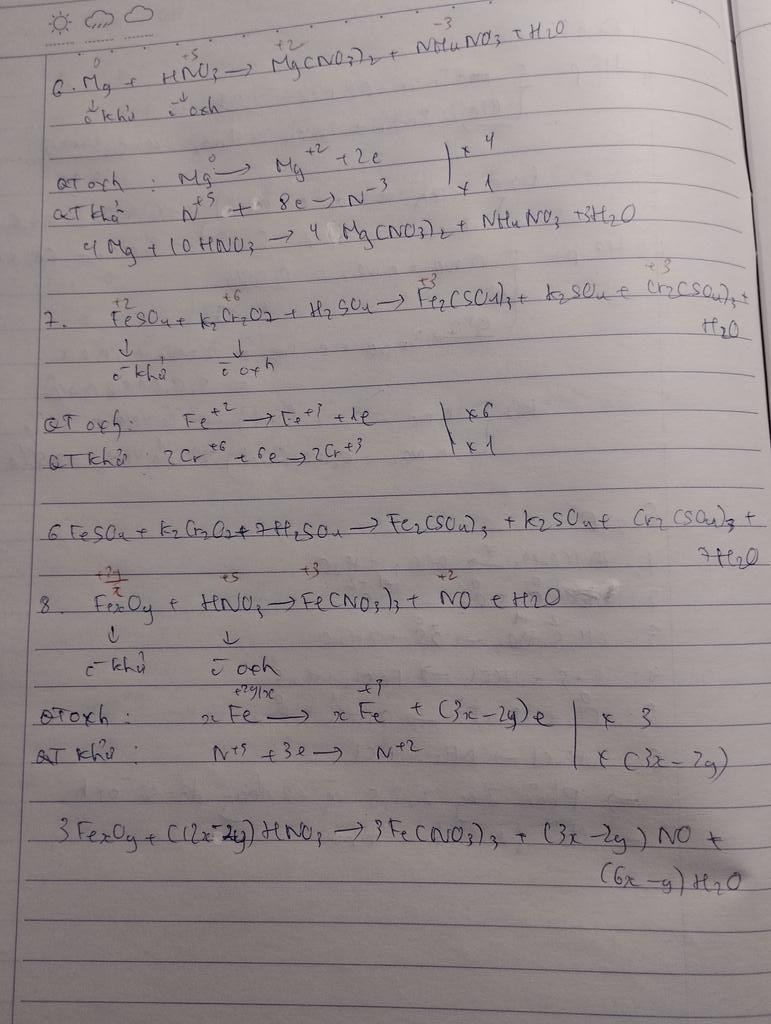 6. Mg + HNO3 → Mg(NO3)2 + NH4NO3 + H2O
0 +5 +2 -3
↓ ↓
c- khử c- oxh
QT oxh : Mg0 → Mg+2 + 2e | x 4
QT khử N+5 + 8e → N-3 | x 1
4Mg + 10HNO3 → 4 Mg(NO3)2 + NH4NO3 + 3H2O
+2 +6 +3 +3
7. FeSO4 + K2Cr2O7 + H2SO4 → Fe2(SO4)3 + K2SO4 + Cr2(SO4)3 +
H2O
↓ ↓
c- khử c- oxh
QT oxh: Fe+2 → Fe+3 + 1e | x 6
QT khử: 2Cr+6 + 6e → 2Cr+3 | x 1
6FeSO4 + K2Cr2O7 + 7H2SO4 → Fe2(SO4)3 + K2SO4 + Cr2(SO4)3 +
7H2O
+2y/x +5 +3 +2
8. FexOy + HNO3 → Fe(NO3)3 + NO + H2O
↓ ↓
c- khử c- oxh
+2y/x +3
QT oxh : xFe → xFe + (3x-2y)e | x 3
QT khử : N+5 + 3e → N+2 | x (3x-2y)
3FexOy + (12x-2y)HNO3 → 3Fe(NO3)3 + (3x-2y)NO +
(6x-y)H2O